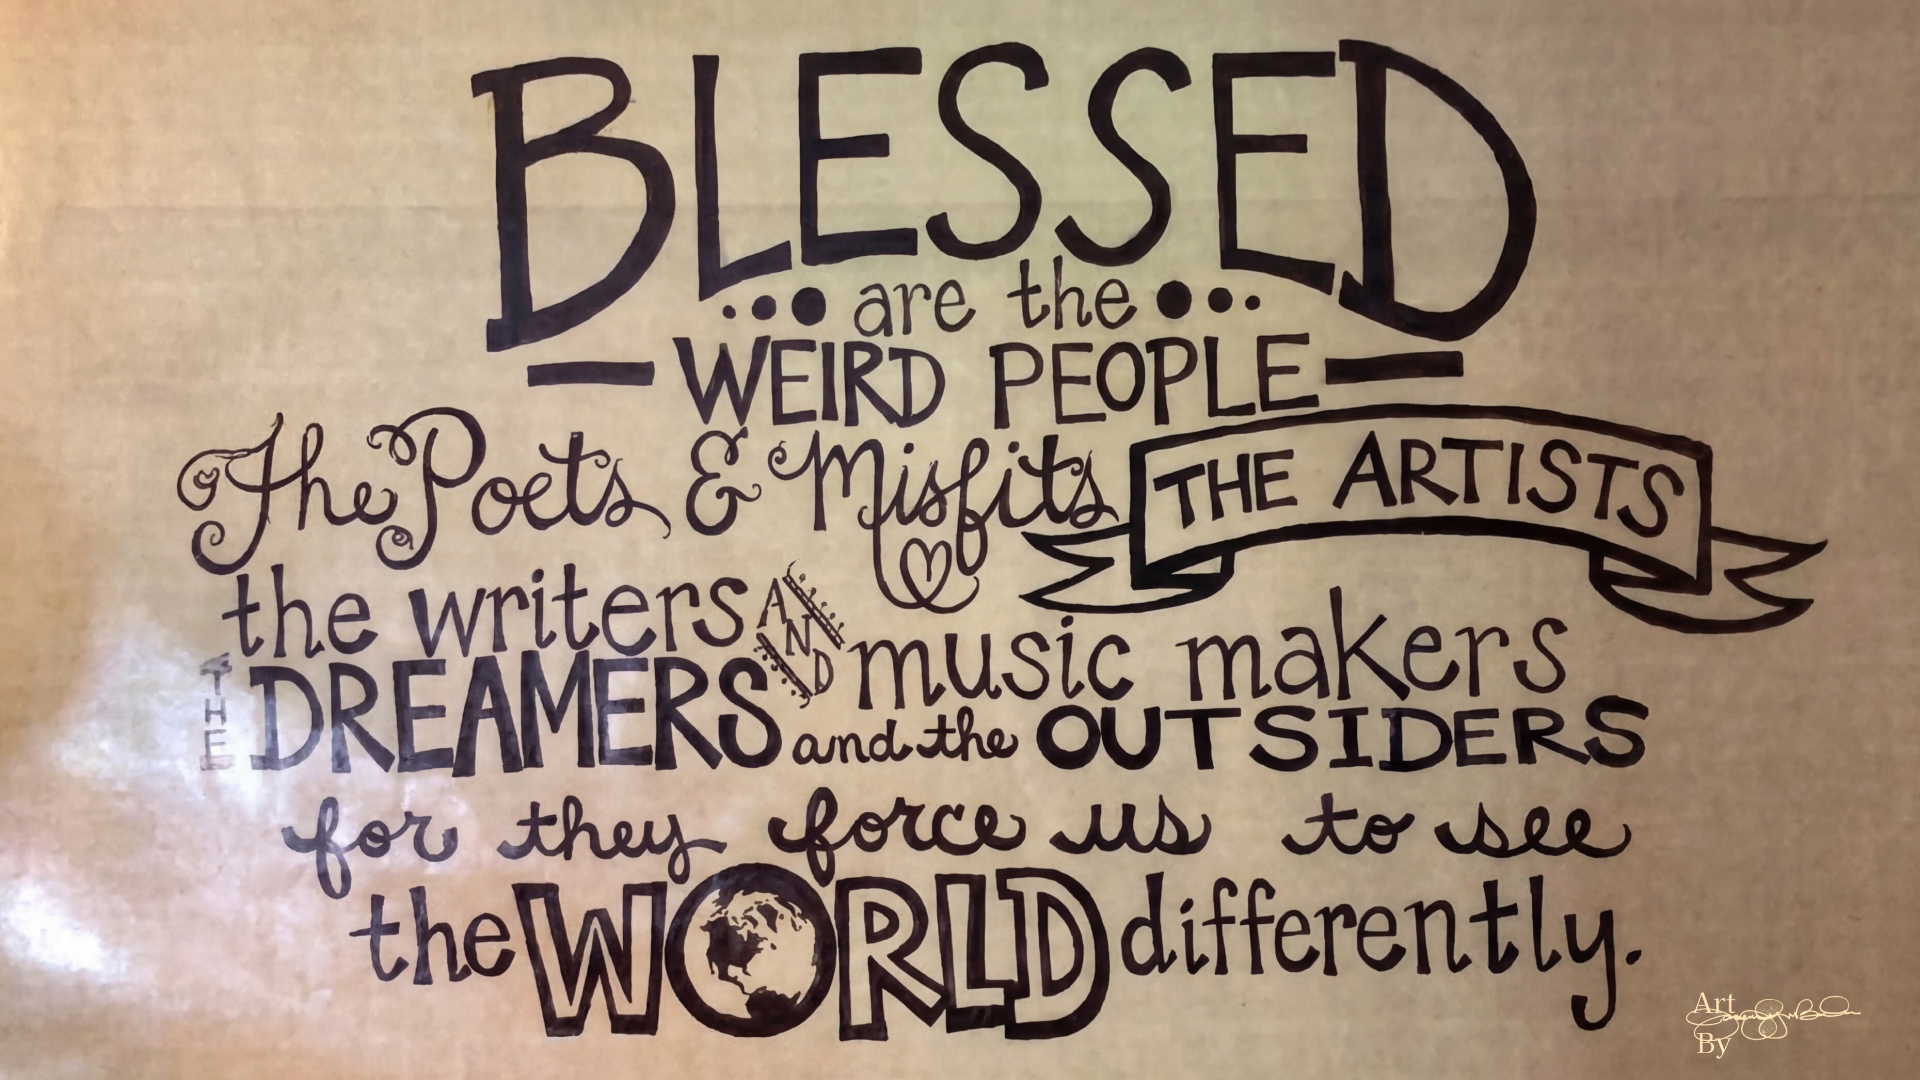 BLESSED
are the
WEIRD PEOPLE
The Poets & Misfits THE ARTISTS
the writers AND music makers
THE DREAMERS and the OUTSIDERS
for they force us to see
the WORLD differently.
Art
By